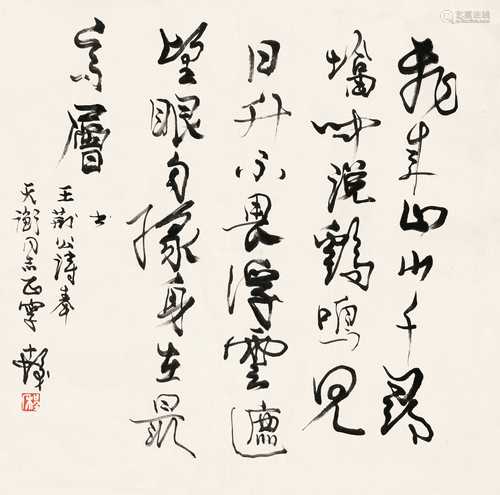 飛来山上千尋
墖聞說鷄鳴見
日升不畏浮雲遮
望眼自緣身在最
高層
書
王荊公詩奉
天衡同志正字